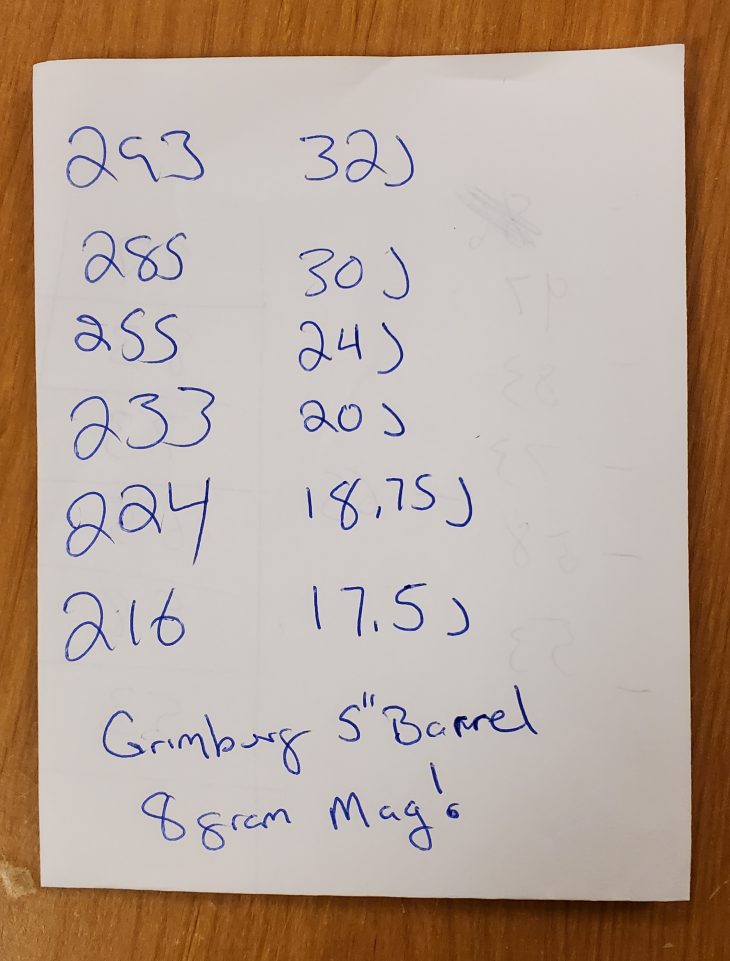 293 32J
285 30J
255 24J
233 20J
224 18.75J
216 17.5J
Grimburg 5" Barrel
8 gram Mag!